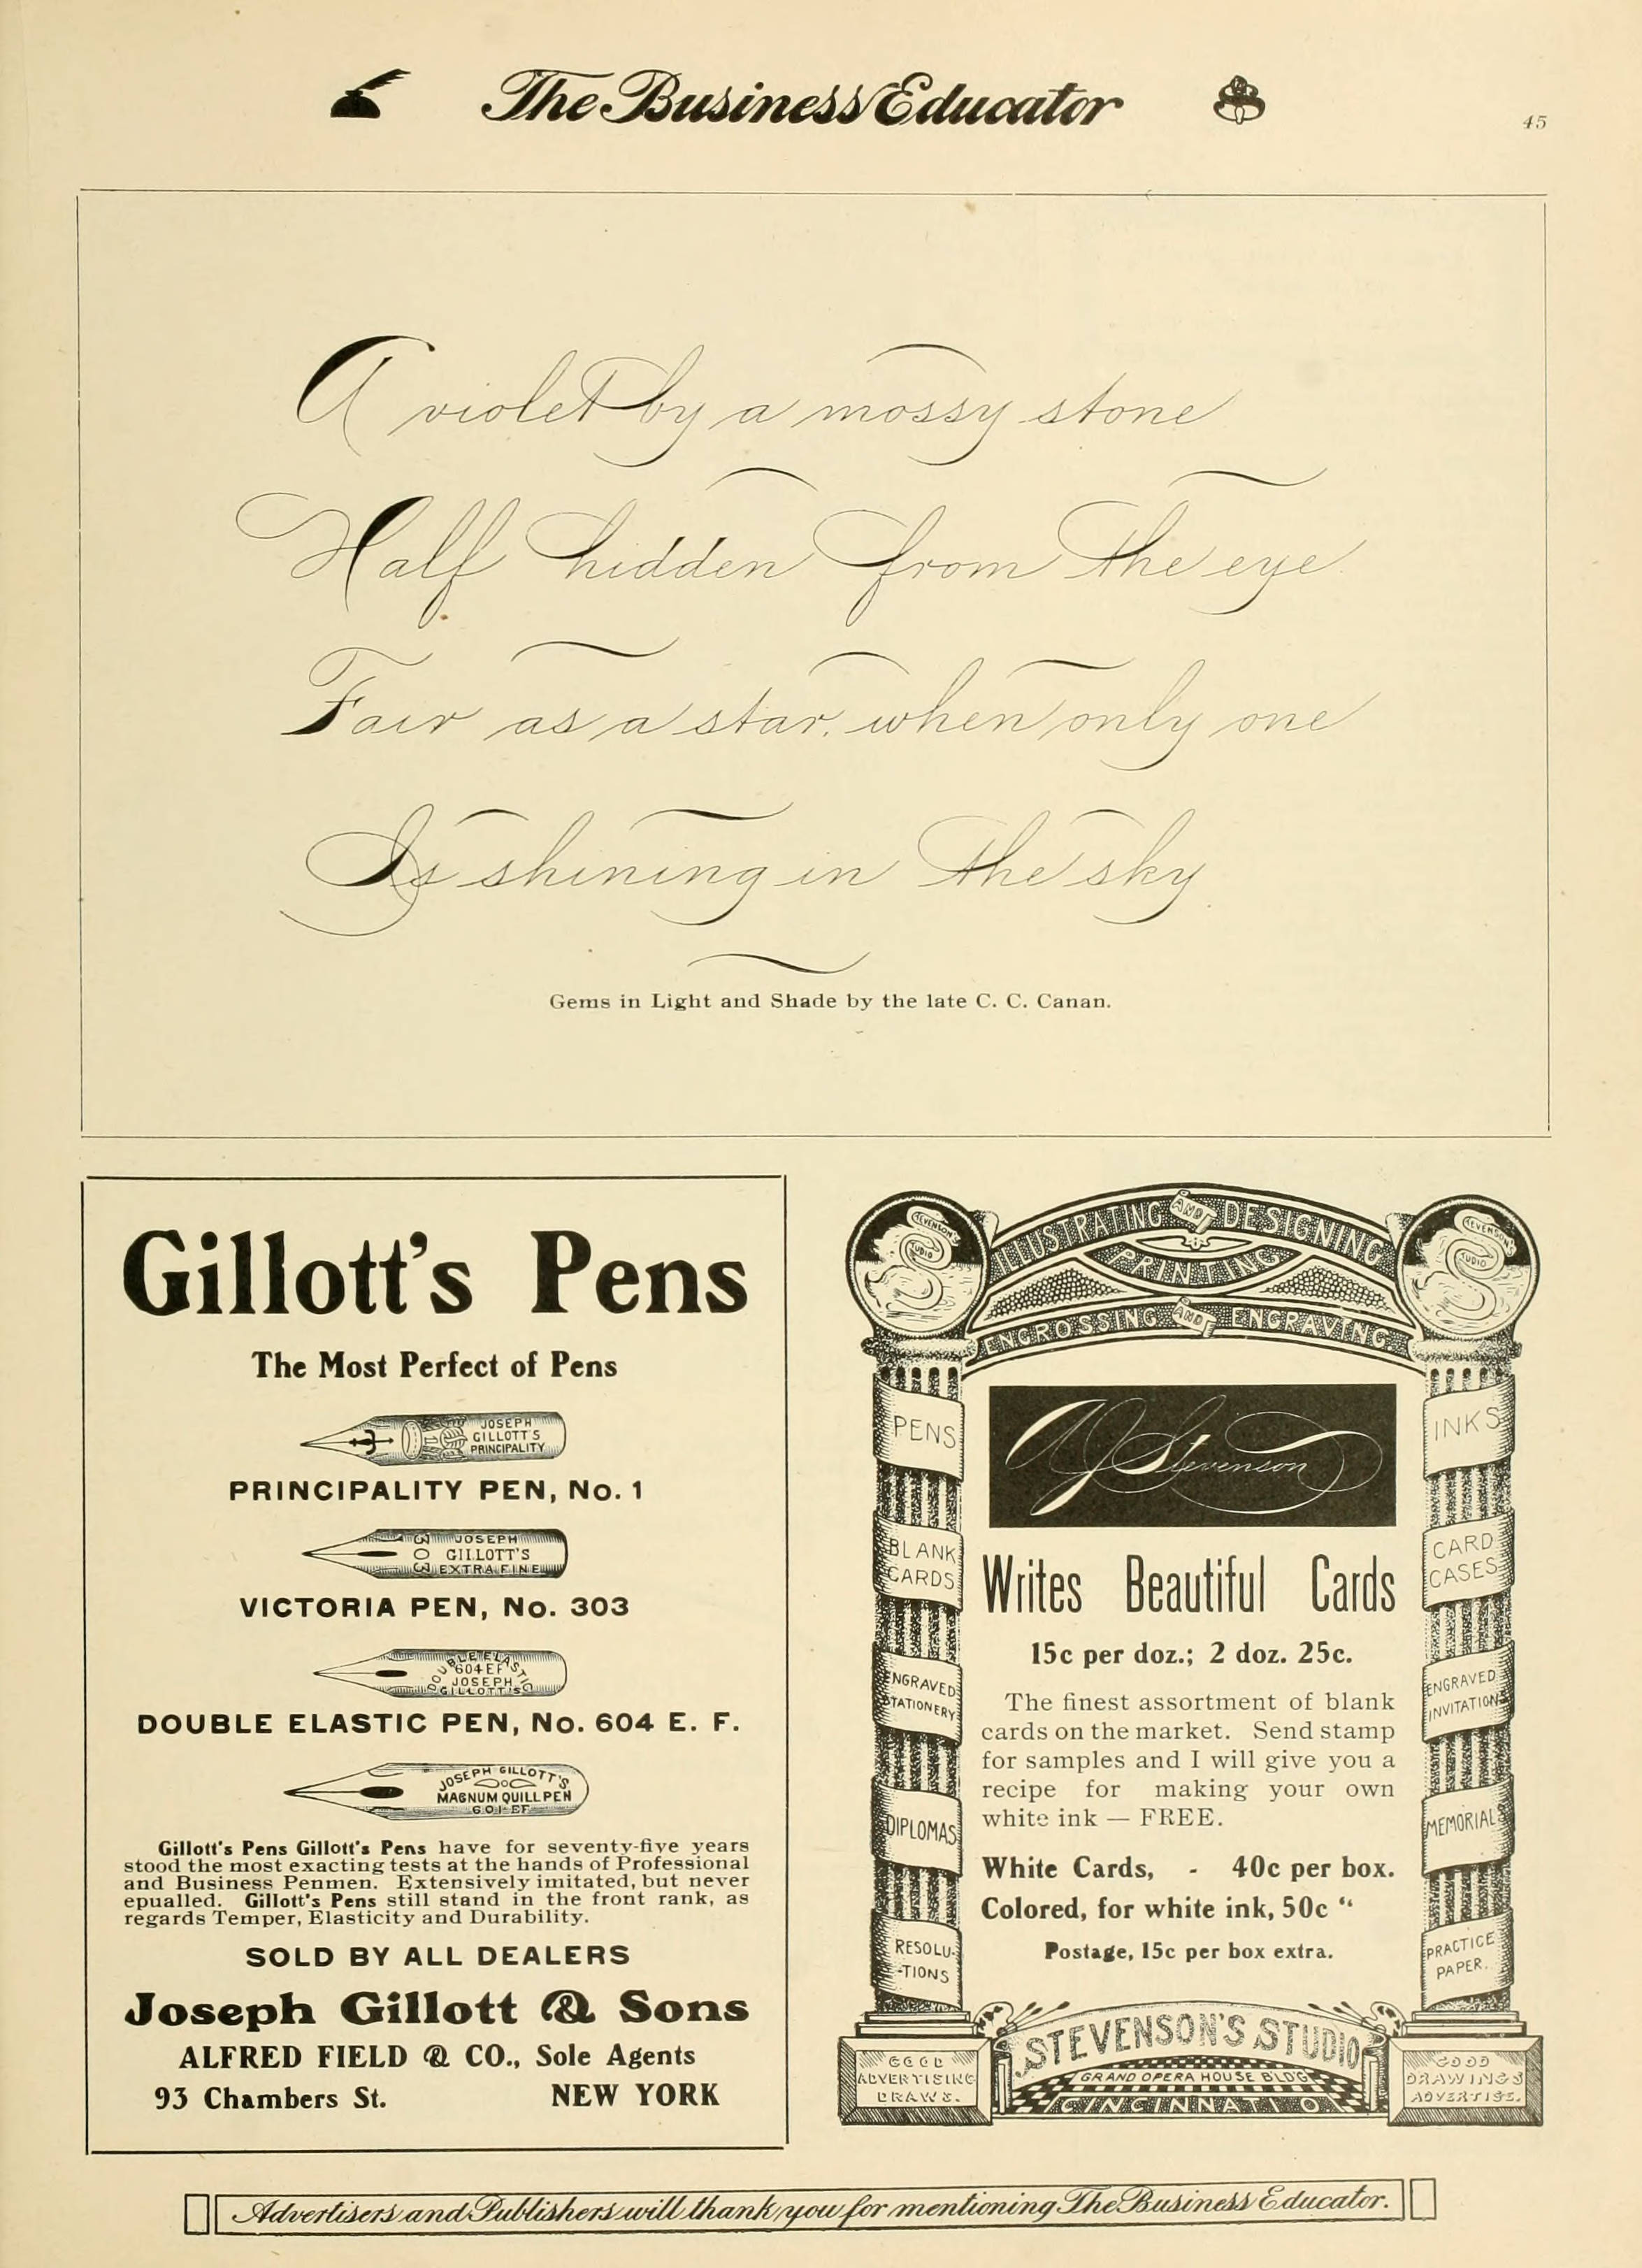 The Business Educator
45
A violet by a mossy stone
Half hidden from the eye.
Fair as a star, when only one
Is shining in the sky.
Gems in Light and Shade by the late C. C. Canan.
Gillott's Pens
The Most Perfect of Pens
JOSEPH
GILLOTT'S
PRINCIPALITY
PRINCIPALITY PEN, No. 1
303
JOSEPH
GILLOTT'S
EXTRA FINE
VICTORIA PEN, No. 303
DOUBLE ELASTIC
604 EF
JOSEPH
GILLOTT'S
DOUBLE ELASTIC PEN, No. 604 E. F.
JOSEPH GILLOTT'S
MAGNUM QUILL PEN
601 EF
Gillott's Pens Gillott's Pens have for seventy-five years
stood the most exacting tests at the hands of Professional
and Business Penmen. Extensively imitated, but never
epualled. Gillott's Pens still stand in the front rank, as
regards Temper, Elasticity and Durability.
SOLD BY ALL DEALERS
Joseph Gillott & Sons
ALFRED FIELD & CO., Sole Agents
93 Chambers St. NEW YORK
STEVENSON'S
STUDIO
ILLUSTRATING AND DESIGNING
PRINTING
ENGROSSING AND ENGRAVING
STEVENSON'S
STUDIO
PENS
BLANK
CARDS
ENGRAVED
STATIONERY
DIPLOMAS
RESOLU-
-TIONS
Stevenson
Writes Beautiful Cards
15c per doz.; 2 doz. 25c.
The finest assortment of blank
cards on the market. Send stamp
for samples and I will give you a
recipe for making your own
white ink — FREE.
White Cards, - 40c per box.
Colored, for white ink, 50c "
Postage, 15c per box extra.
INKS
CARD
CASES
ENGRAVED
INVITATIONS
MEMORIALS
PRACTICE
PAPER.
GOOD
ADVERTISING
DRAWS.
STEVENSON'S STUDIO
GRAND OPERA HOUSE BLD'G
CINCINNATI O
GOOD
DRAWINGS
ADVERTISE.
Advertisers and Publishers will thank you for mentioning The Business Educator.